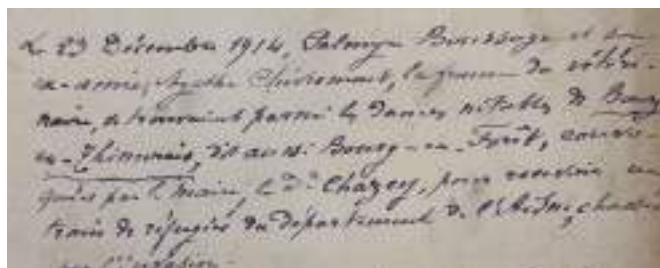 Le 23 Décembre 1914, Palmyre et son
ex-amie, Agathe Chévremont, la femme du vétéri-
naire, se trouvaient parmi les dames notables de Bourg
en-Thimerais, dit aussi Bourg-en-Forêt, convo-
quées par l'maire, le Dr Chazey, pour recevoir un
train de réfugiés du département de l'Aisne, chassés
par l'invasion.